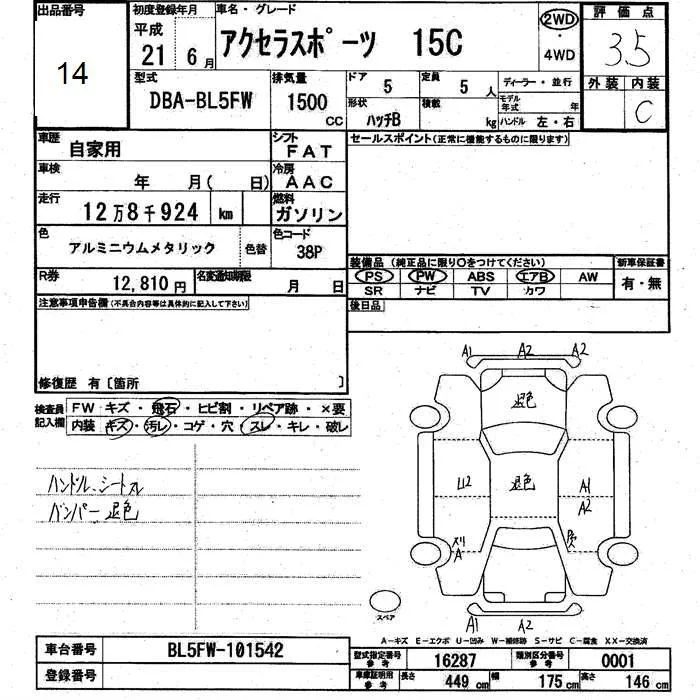 出品番号
14
初度登録年月
平成
21 6月
車名・グレード
アクセラスポーツ 15C
2WD
・
4WD
評価点
3.5
外装 内装
C
型式
DBA-BL5FW
排気量
1500
CC
ドア
5
定員
5 人
形状
ハッチB
積載
kg
ディーラー・並行
モデル年式 年
ハンドル 左・右
車歴
自家用
シフト
FAT
車検
年 月( 日)
冷房
AAC
走行
12万8千924 km
燃料
ガソリン
色
アルミニウムメタリック
色替
色コード
38P
R券
12,810円
名変通知期限
月 日
セールスポイント(正常に機能するものに限ります)
装備品(純正品に限り○をつけてください)
PS PW ABS エアB AW
SR ナビ TV カワ
新車保証書
有・無
後日品
注意事項申告欄(不具合内容等は具体的に記入して下さい)
修復歴 有〔箇所 〕
検査員
記入欄
FW キズ・飛石・ヒビ割・リペア跡・×要
内装 キズ・汚レ・コゲ・穴・スレ・キレ・破レ
ハンドル、シートスレ
バンパー退色
A1 A2 A2
退色
U2
退色
A1
A2
A
A1 A2
スペア
A-キズ E-エクボ U-凹み W-補修跡 S-サビ C-腐食 XX-交換済
車台番号
BL5FW-101542
登録番号
型式指定番号
参考
16287
類別区分番号
参考
0001
車庫証明用
参考
長さ
449 cm
幅
175 cm
高さ
146 cm